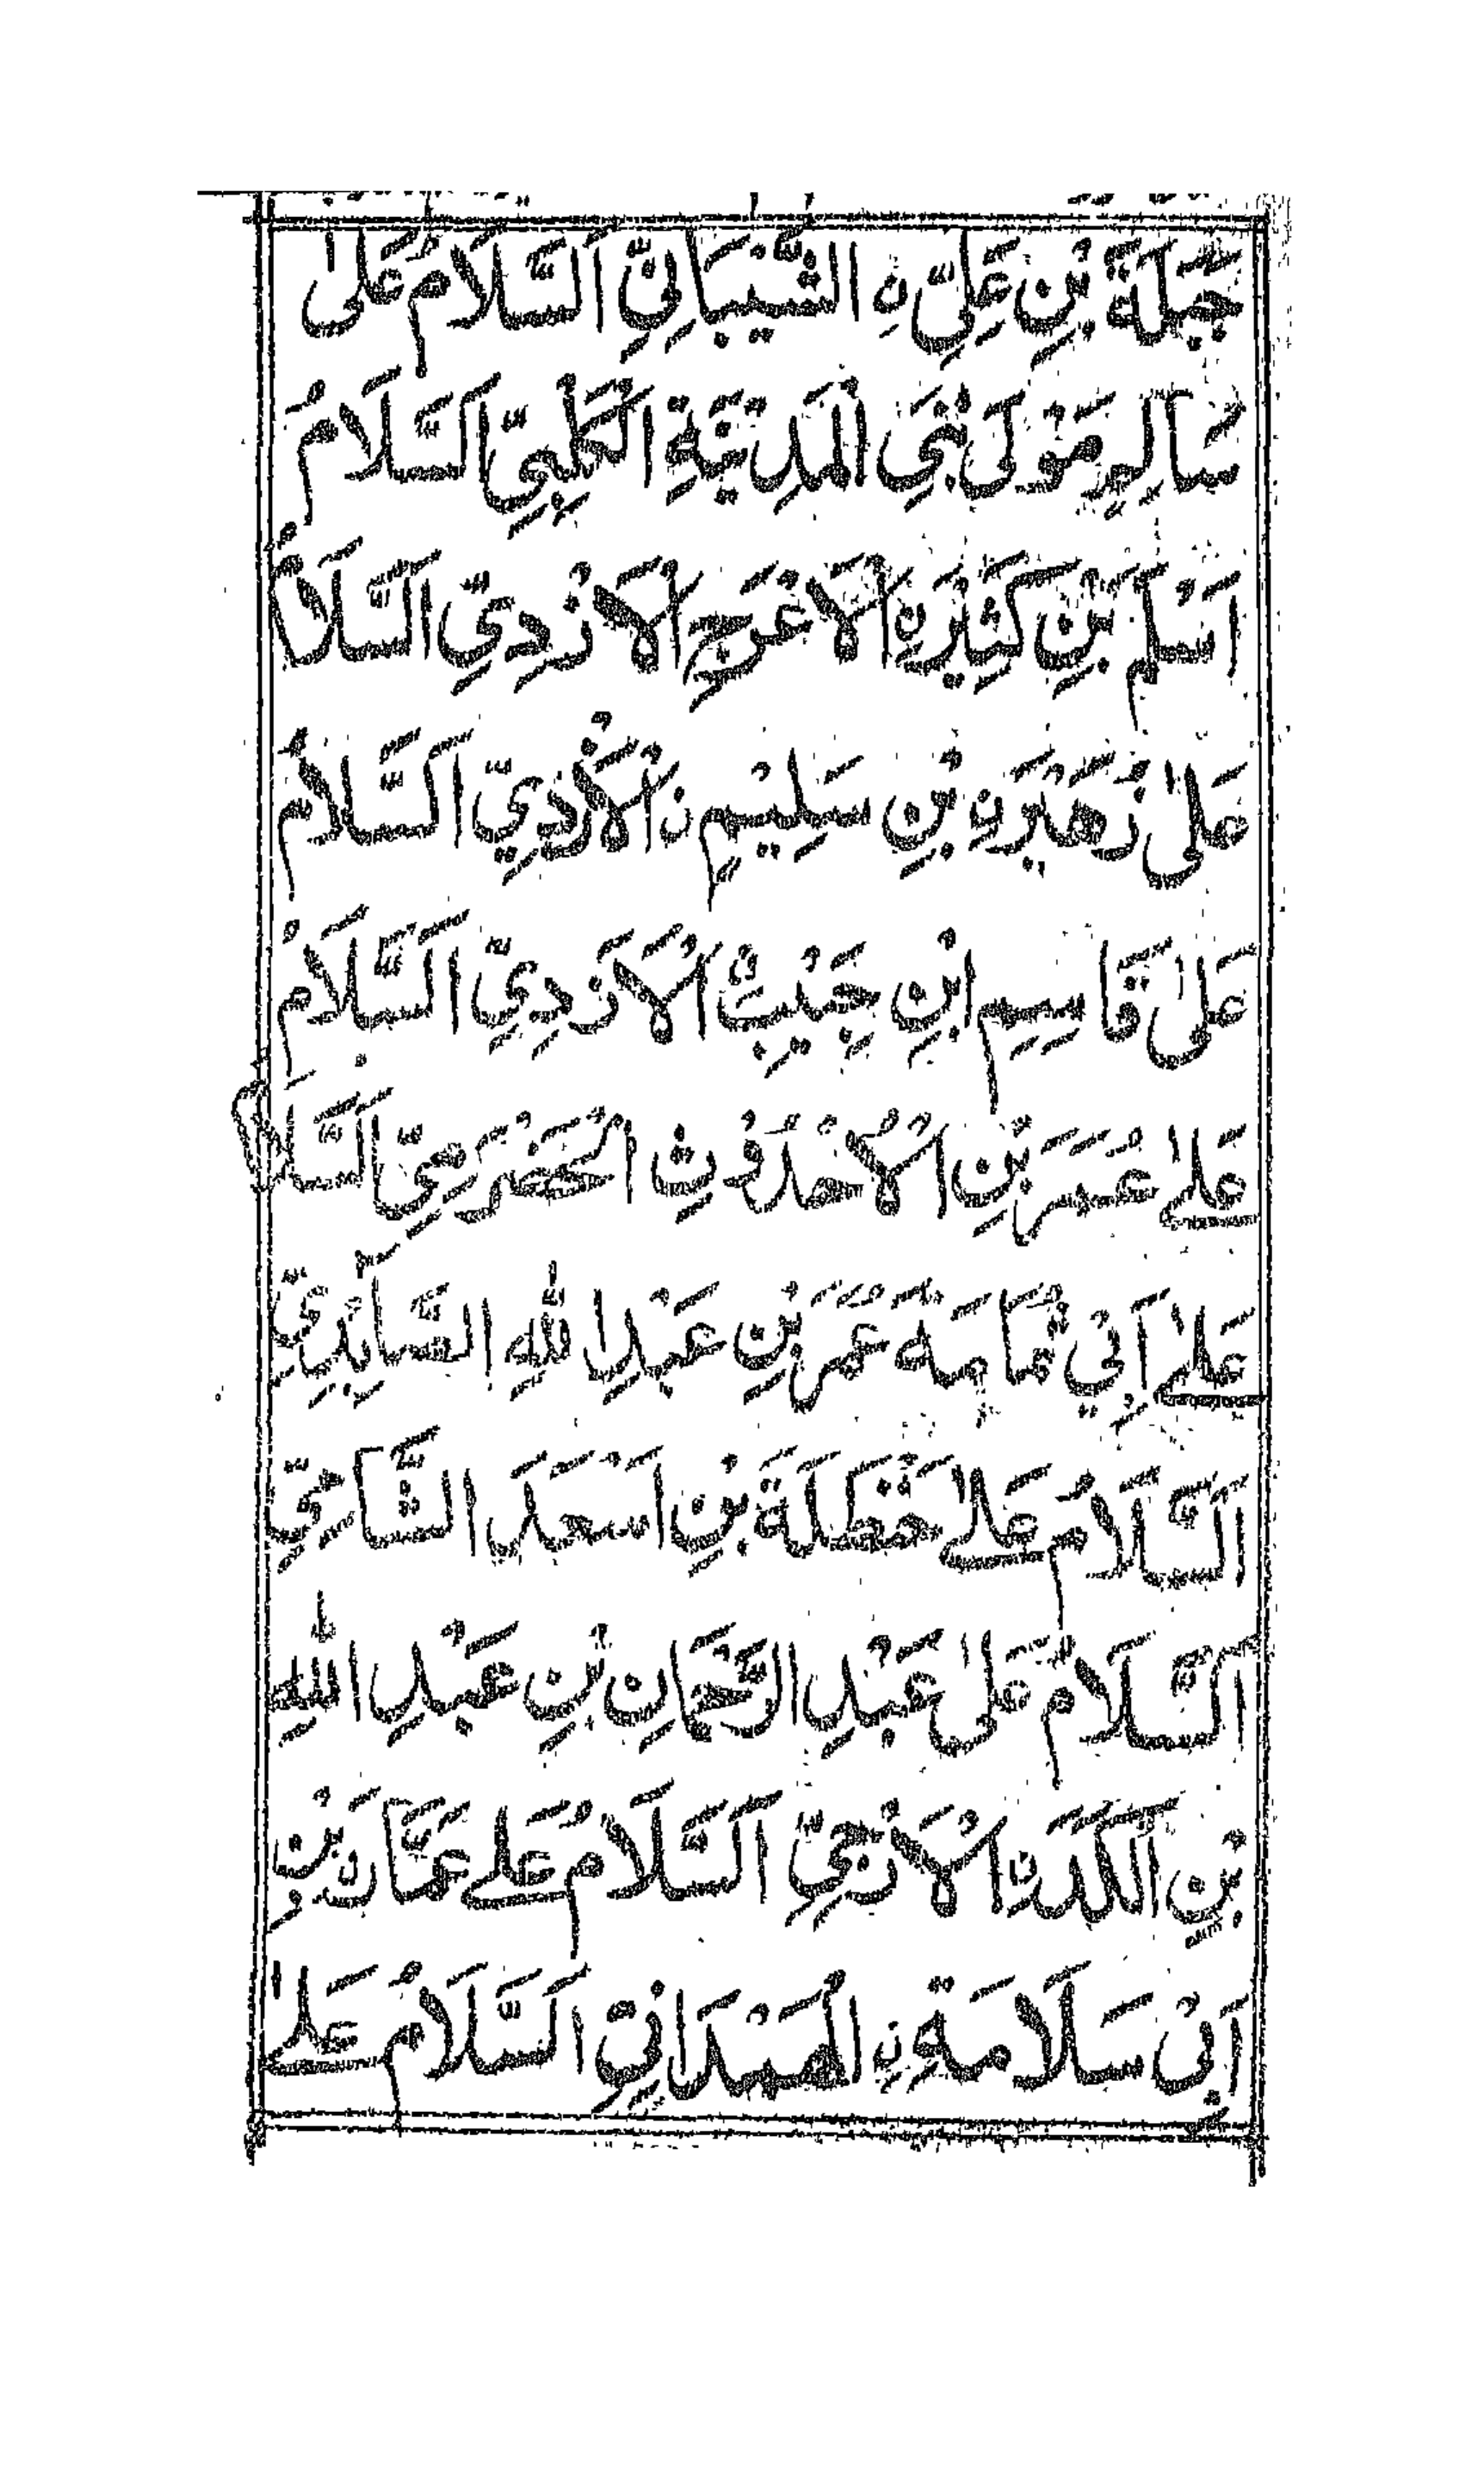 جَبَلَةَ بْنِ عَلِيِّ نِ الشَّيْبَانِيِّ اَلسَّلَامُ عَلٰى
سَالِمٍ مَوْلٰى بَنِي الْمَدِيْنَةِ الْكَلْبِيِّ اَلسَّلَامُ
اَسْلَمَ بْنِ كَثِيْرِنِ الْاَعْرَجِ الْاَزْدِيِّ السَّلَامُ
عَلٰى زُهَيْرِنِ بْنِ سَلِيْمِ نِ الْاَزْدِيِّ اَلسَّلَامُ
عَلٰى قَاسِمِ ابْنِ حَبِيْبٍ الْاَزْدِيِّ اَلسَّلَامُ
عَلٰے عُمَرَ بْنِ الْاُحْدُوْثِ الْحَضْرَمِيِّ اَلسَّلَامُ
عَلٰے اَبِيْ ثُمَامَةَ عُمَرَ بْنِ عَبْدِاللهِ الصَّائِدِيِّ
اَلسَّلَامُ عَلٰے حَنْظَلَةَ بْنِ اَسْعَدَ الشَّامِيِّ
اَلسَّلَامُ عَلٰى عَبْدِ الرَّحْمَانِ بْنِ عَبْدِ اللهِ
بْنِ الْكَدَنِ الْاَرْحَبِيِّ اَلسَّلَامُ عَلٰے عَمَّارَ بْنِ
اَبِيْ سَلَامَةَ نِ الْهَمْدَانِيِّ اَلسَّلَامُ عَلٰے